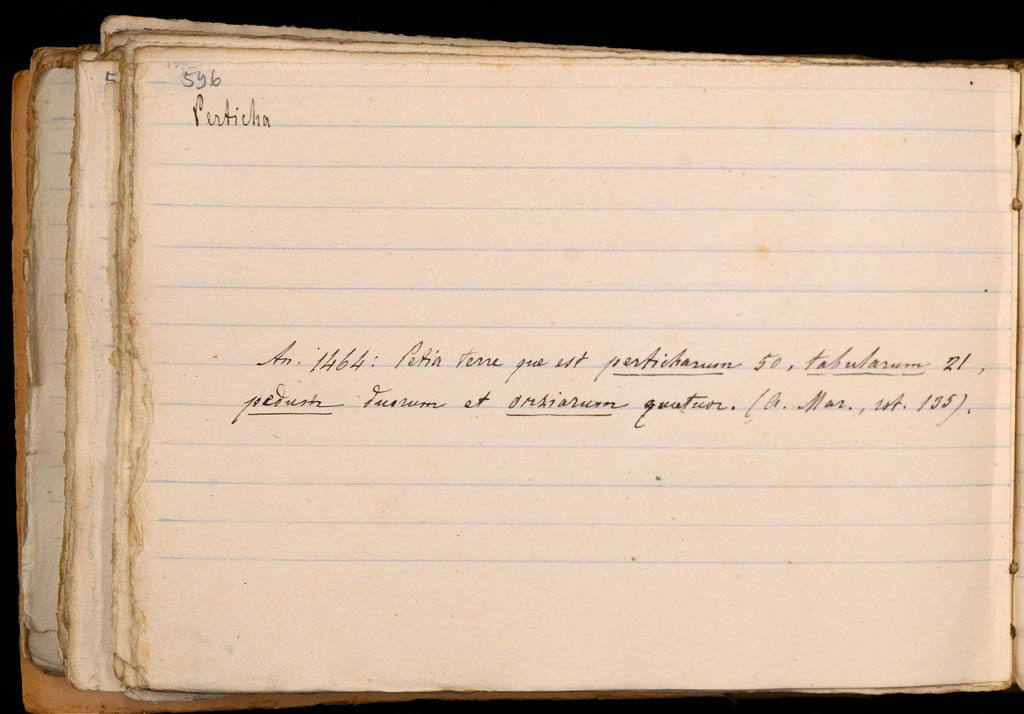 596
5
Perticha
An. 1464: Petia terre que est perticharum 50, tabularum 21,
pedum duorum et onziarum quatuor. (A. Mar., rot. 135).